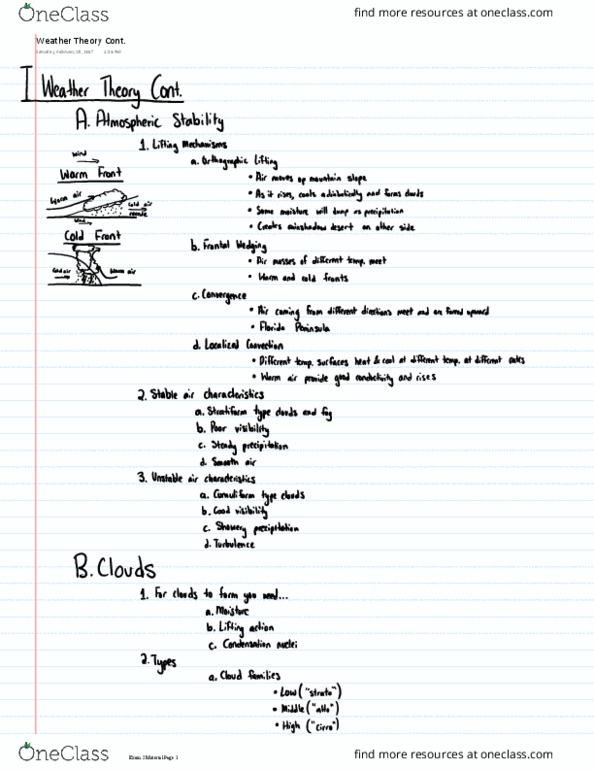 OneClass
find more resources at oneclass.com
Weather Theory Cont.
I Weather Theory Cont.
A. Atmospheric Stability
1. Lifting Mechanisms
a. Orthographic Lifting
• Air moves up mountain slope
• As it rises, cools adiabatically and forms clouds
• Some moisture will dump as precipitation
• Creates rainshadow desert on other side
Wind
Warm Front
Warm air
Cold air
Wind
Cold Front
Cold air
Warm air
b. Frontal Wedging
• Air masses of different temp. meet
• Warm and cold fronts
c. Convergence
• Air coming from different directions meet and are forced upward
• Florida Peninsula
d. Localized Convection
• Different temp. surfaces heat & cool at different temp. at different rates
• Warm air provide good conductivity and rises
2. Stable air characteristics
a. Stratiform type clouds and fog
b. Poor visibility
c. Steady precipitation
d. Smooth air
3. Unstable air characteristics
a. Cumuliform type clouds
b. Good visibility
c. Showery precipitation
d. Turbulence
B. Clouds
1. For clouds to form you need...
a. Moisture
b. Lifting action
c. Condensation nuclei
2. Types
a. Cloud families
• Low ("strato")
• Middle ("alto")
• High ("cirro")
OneClass
find more resources at oneclass.com